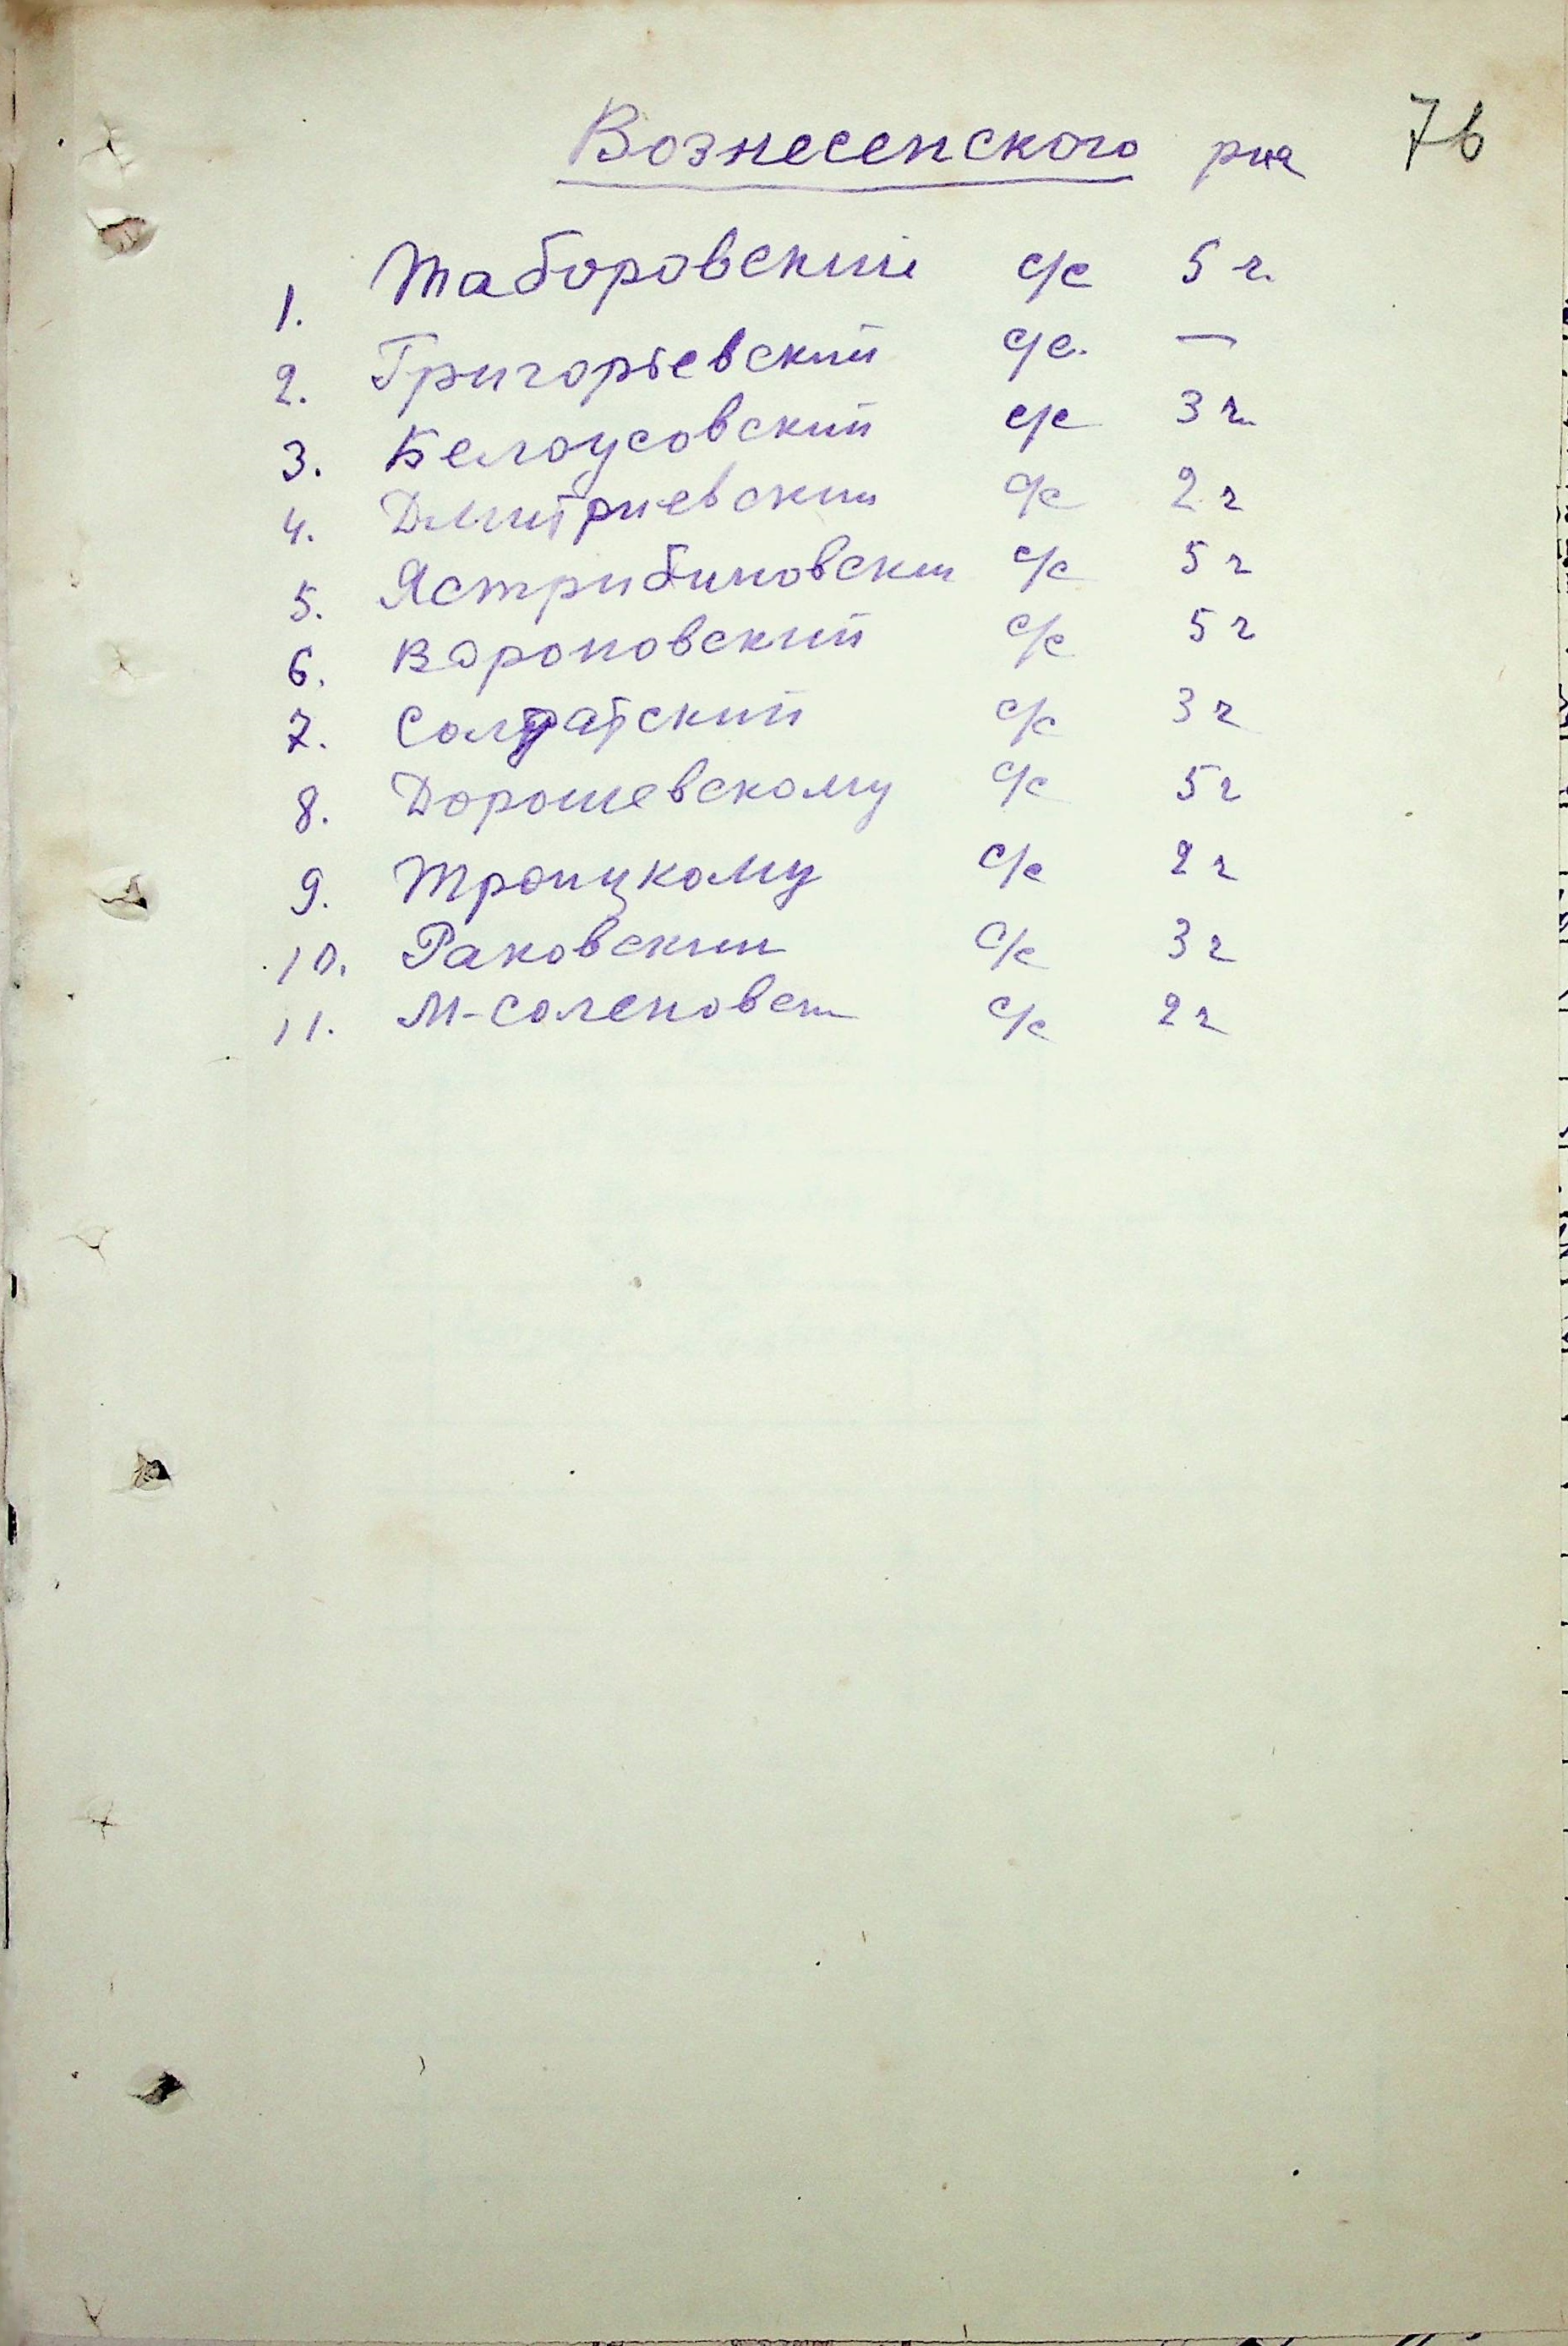 76
Вознесенского рна
1. Таборовский с/с 5 г.
2. Григорьевский с/с. —
3. Белоусовский с/с 3 г.
4. Дмитриевский с/с 2 г
5. Ястрибиновский с/с 5 г
6. Вороновский с/с 5 г
7. Солдатский с/с 3 г
8. Дорошевскому с/с 5 г
9. Троицкому с/с 2 г
10. Раковский с/с 3 г
11. М-Соленовск с/с 2 г